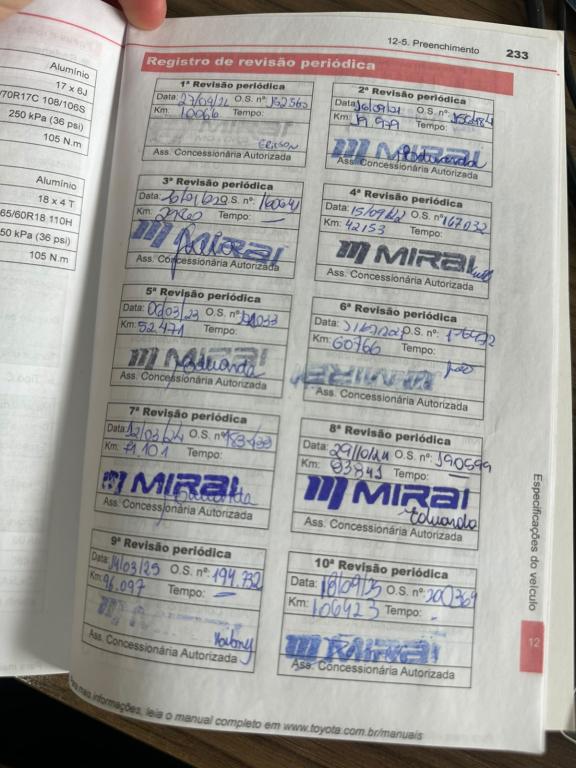 Alumínio
17 x 6J
/70R17C 108/106S
250 kPa (36 psi)
105 N.m
Alumínio
18 x 4 T
65/60R18 110H
50 kPa (36 psi)
105 N.m
12-5. Preenchimento 233
Registro de revisão periódica
1ª Revisão periódica
Data: O.S. nº:
Km: 10066 Tempo:
Ericson
Ass. Concessionária Autorizada
2ª Revisão periódica
Data: O.S. nº:
Km: 19 979 Tempo:
Ass. Concessionária Autorizada
3ª Revisão periódica
Data: O.S. nº:
Km: Tempo:
Ass. Concessionária Autorizada
4ª Revisão periódica
Data: 15/09/22 O.S. nº: 167032
Km: 42153 Tempo:
MIRAI
Ass. Concessionária Autorizada
5ª Revisão periódica
Data: 06/03/23 O.S. nº:
Km: 52.471 Tempo:
MIRAI
Eduarda
Ass. Concessionária Autorizada
6ª Revisão periódica
Data: O.S. nº:
Km: 60766 Tempo:
MIRAI
Ass. Concessionária Autorizada
7ª Revisão periódica
Data: 12/03/24 O.S. nº:
Km: 71.101 Tempo:
MIRAI
Eduarda
Ass. Concessionária Autorizada
8ª Revisão periódica
Data: 29/10/24 O.S. nº: 190599
Km: 83841 Tempo:
MIRAI
Eduarda
Ass. Concessionária Autorizada
9ª Revisão periódica
Data: 14/03/25 O.S. nº: 194.732
Km: 96.097 Tempo:
Ass. Concessionária Autorizada
10ª Revisão periódica
Data: 18/09/25 O.S. nº: 200369
Km: 106423 Tempo:
MIRAI
Ass. Concessionária Autorizada
Especificações do veículo
12
mais informações, leia o manual completo em www.toyota.com.br/manuais